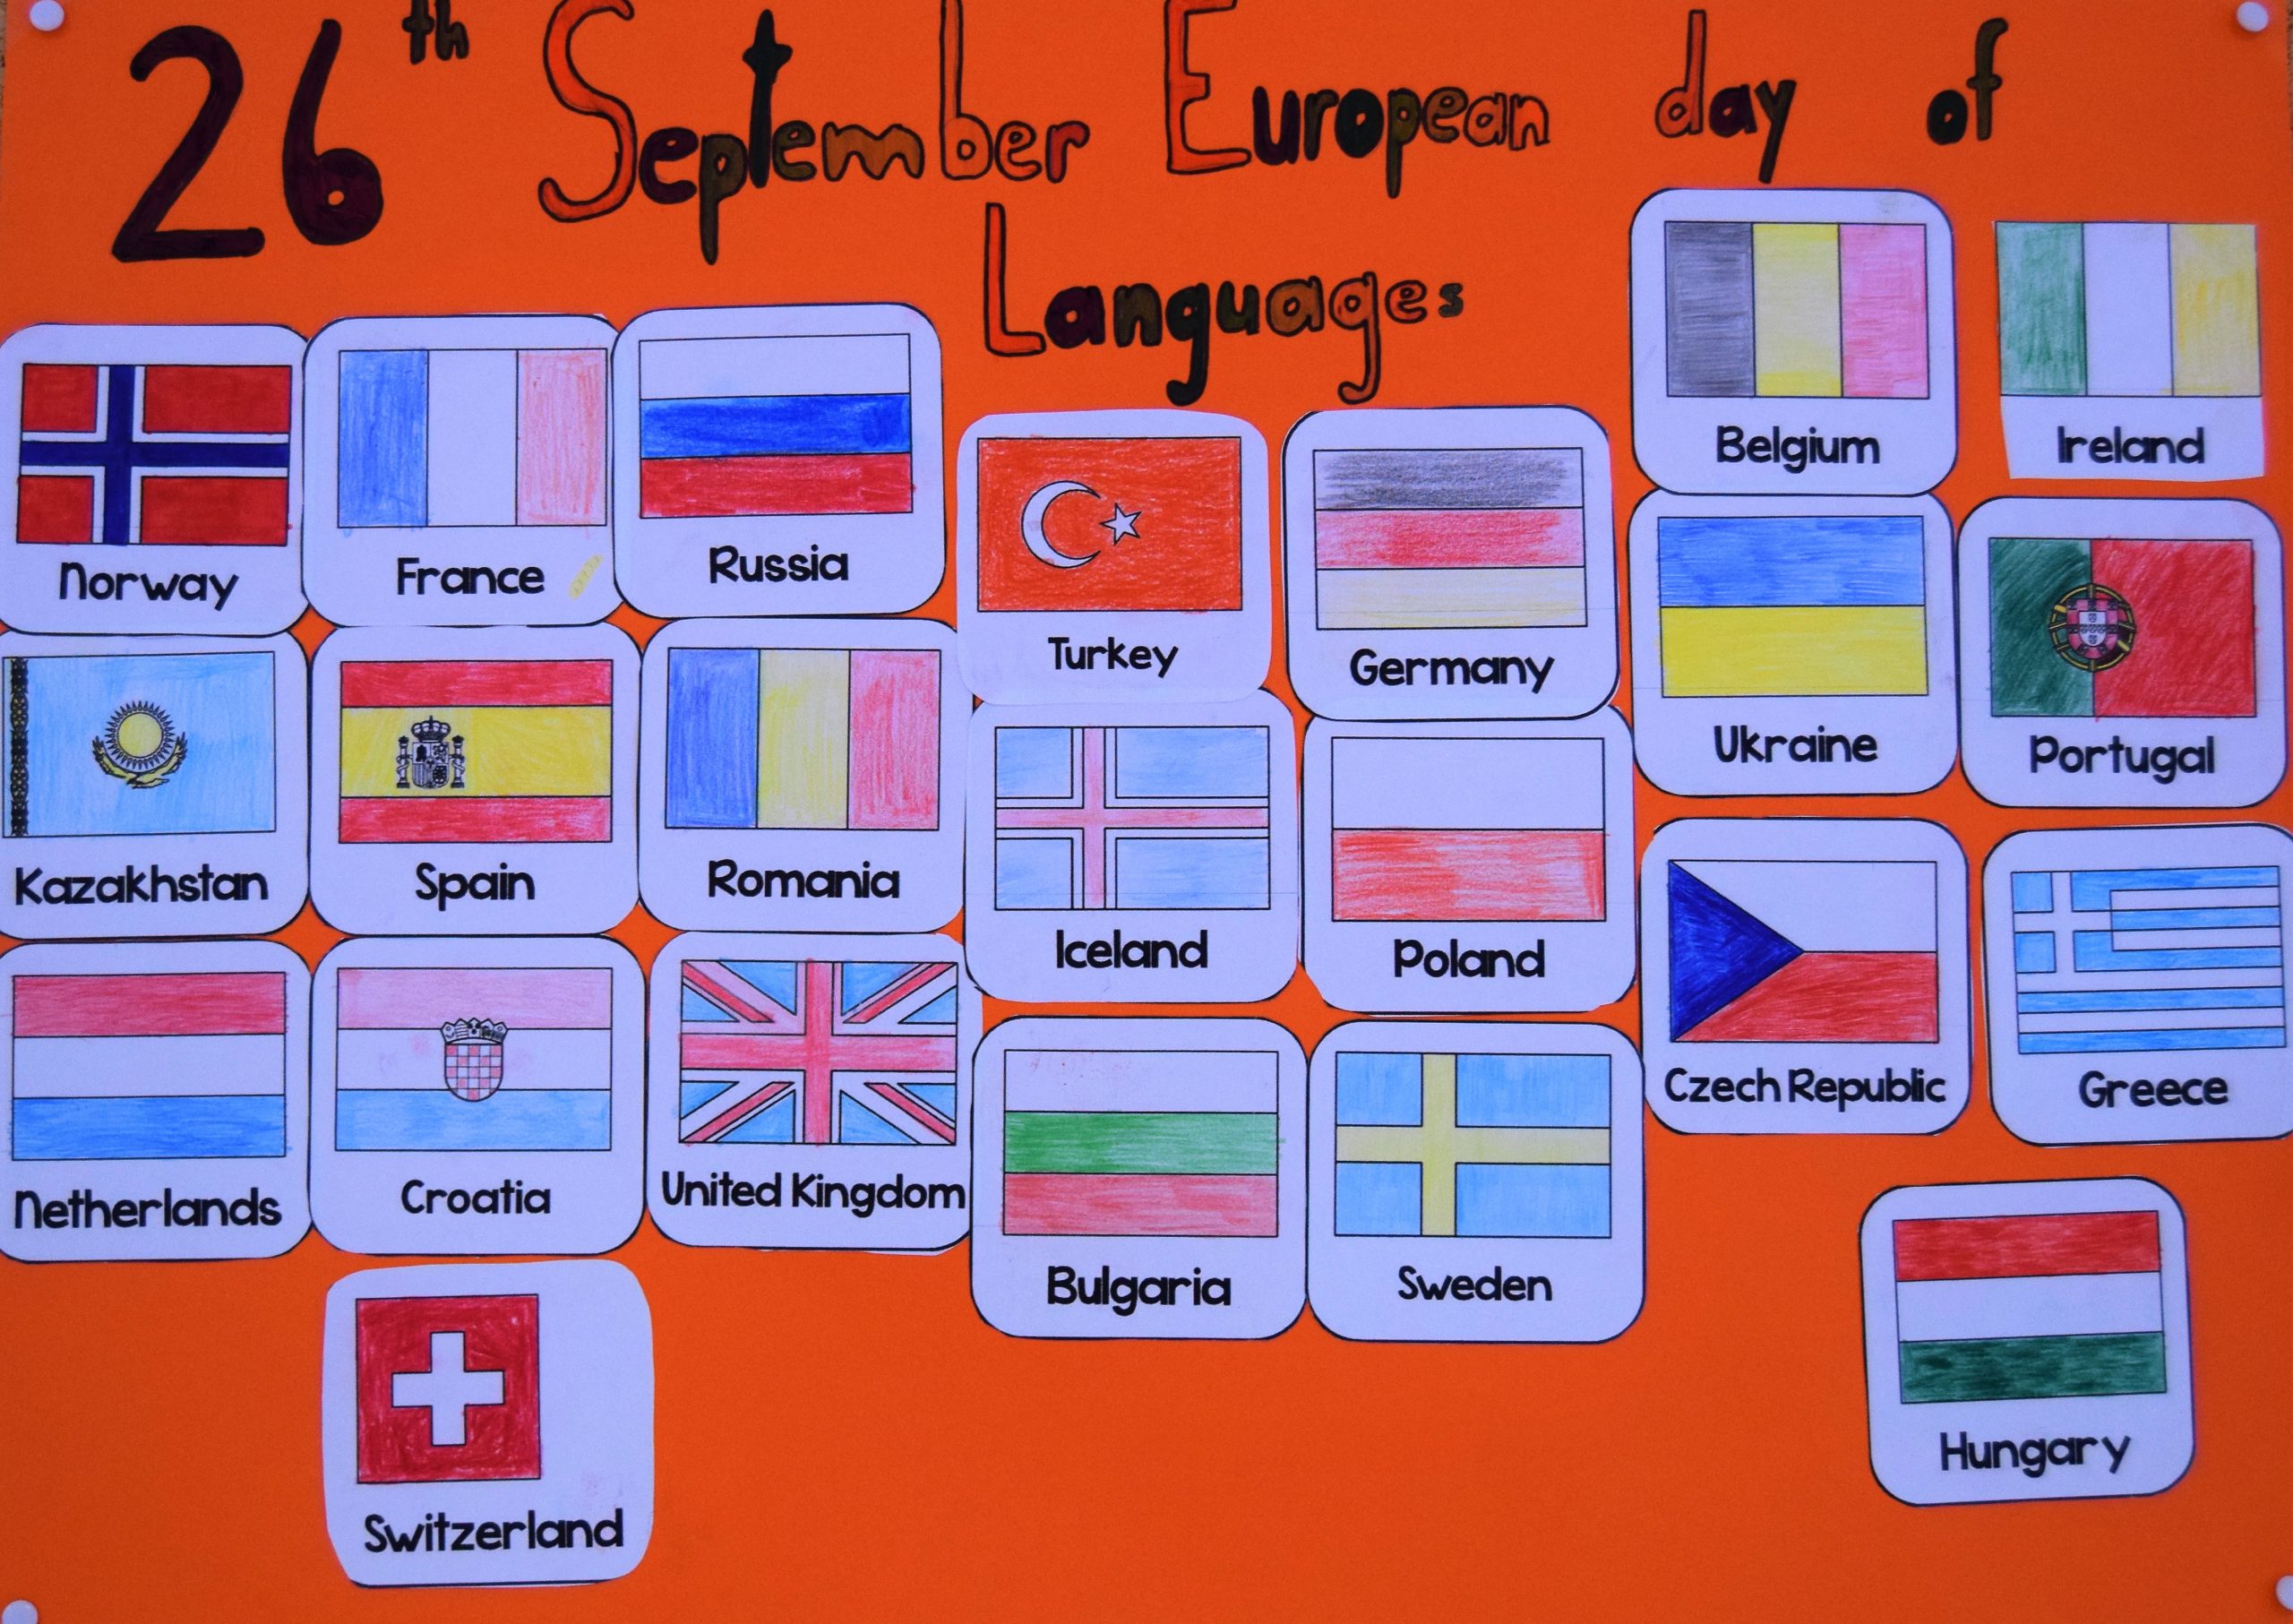 26th September European day of
Languages
Belgium
Ireland
Norway
France
Russia
Turkey
Germany
Ukraine
Portugal
Kazakhstan
Spain
Romania
Iceland
Poland
Czech Republic
Greece
Netherlands
Croatia
United Kingdom
Bulgaria
Sweden
Hungary
Switzerland